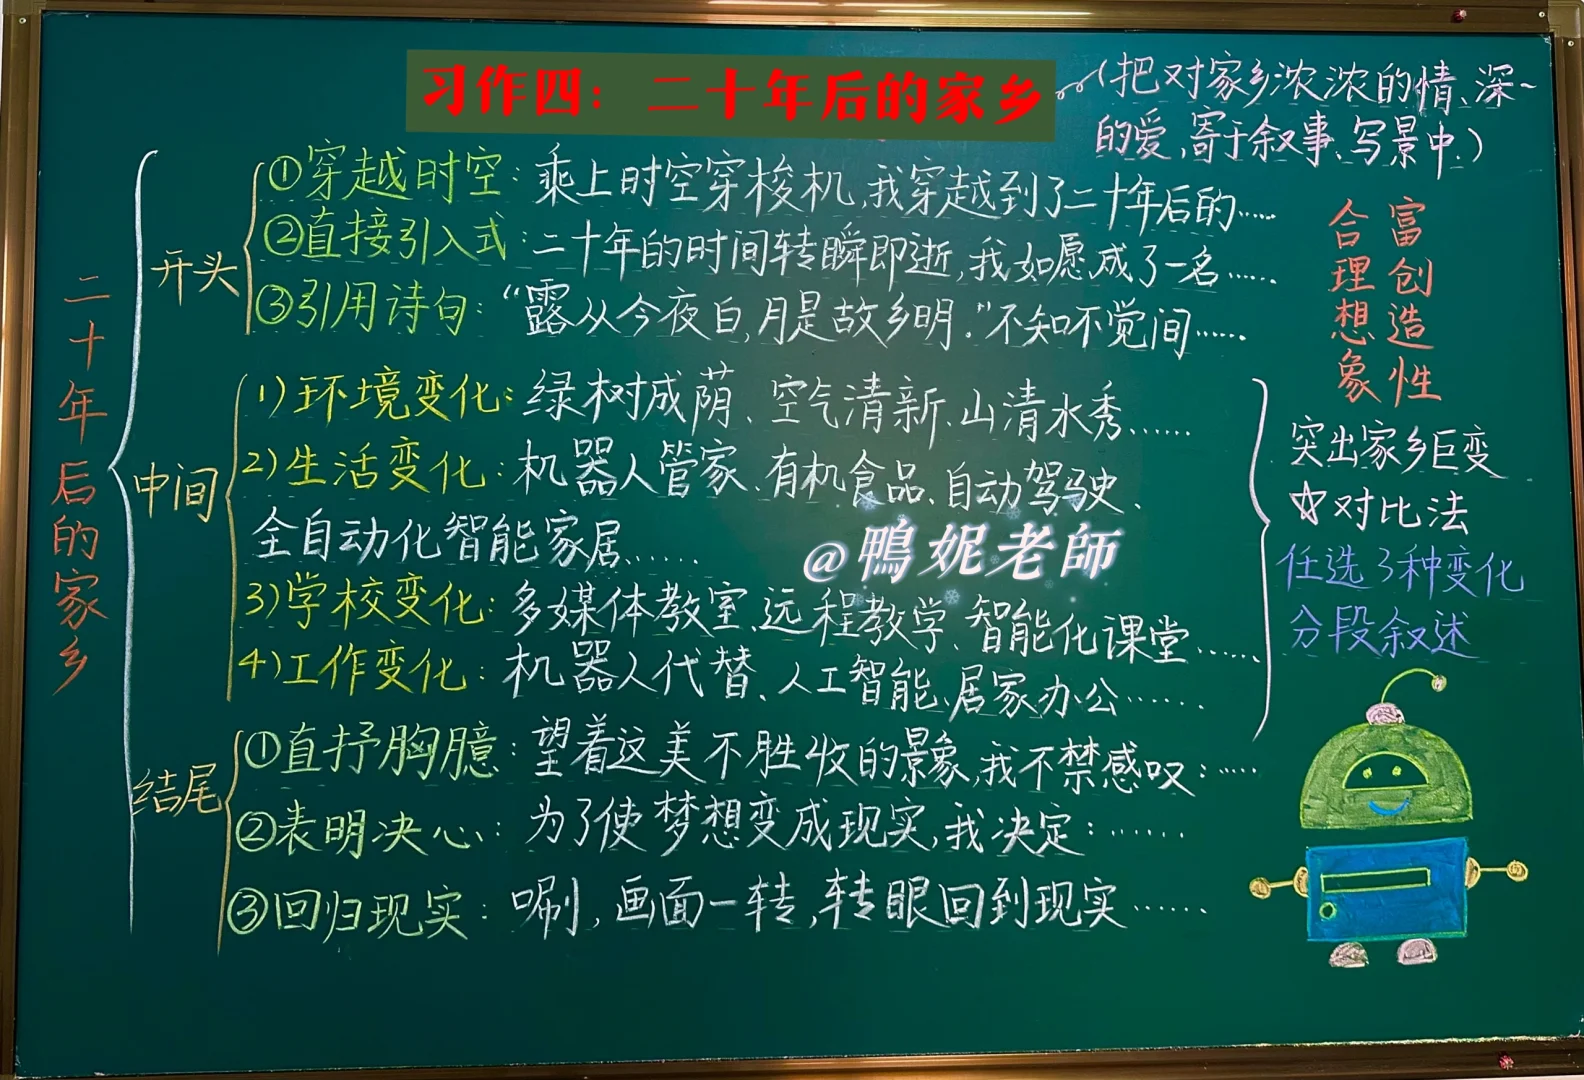 习作四：二十年后的家乡
(把对家乡浓浓的情、深~
的爱,寄于叙事、写景中.)
二十年后的家乡
开头
①穿越时空：乘上时空穿梭机,我穿越到了二十年后的……
②直接引入式：二十年的时间转瞬即逝,我如愿成了一名……
③引用诗句：“露从今夜白,月是故乡明.”不知不觉间……
中间
1)环境变化：绿树成荫、空气清新、山清水秀……
2)生活变化：机器人管家、有机食品、自动驾驶、
全自动化智能家居……
3)学校变化：多媒体教室、远程教学、智能化课堂……
4)工作变化：机器人代替、人工智能、居家办公……
结尾
①直抒胸臆：望着这美不胜收的景象,我不禁感叹：……
②表明决心：为了使梦想变成现实,我决定：……
③回归现实：唰,画面一转,转眼回到现实……
合理想象
富创造性
突出家乡巨变
☆对比法
任选3种变化
分段叙述
@鴨妮老師